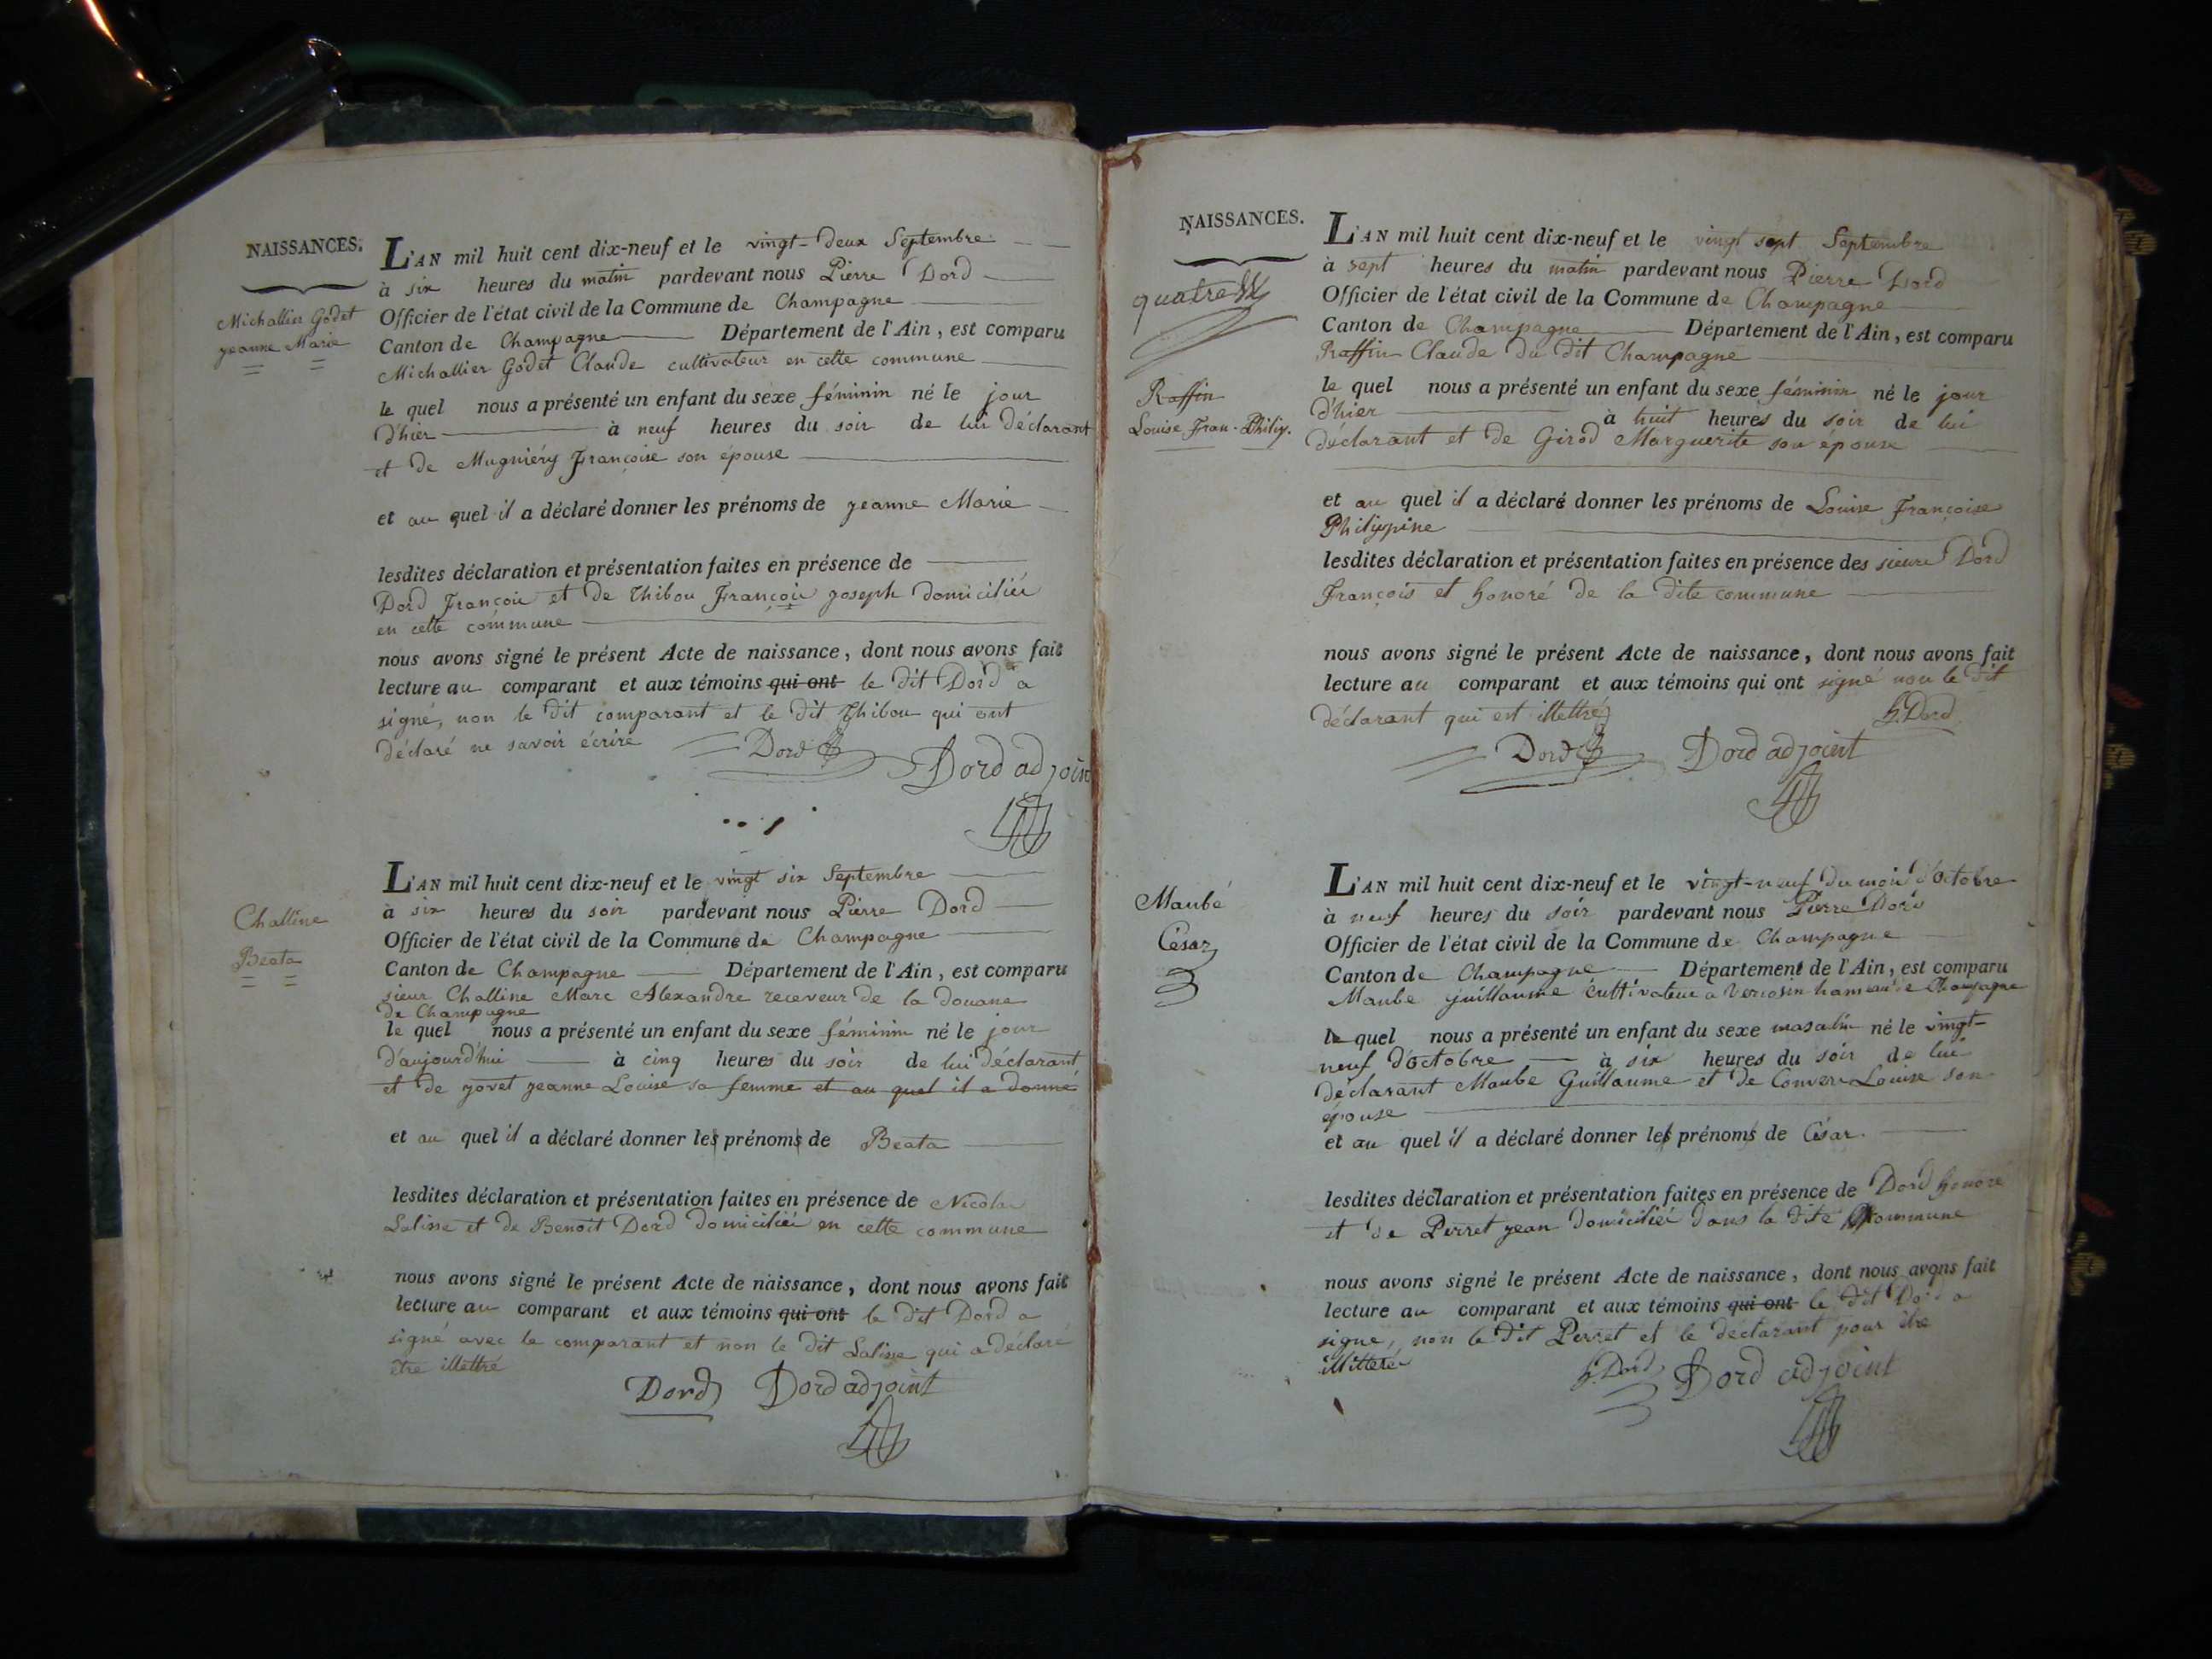 NAISSANCES.
Michallier Godet
jeanne Marie
L'AN mil huit cent dix-neuf et le vingt-deux Septembre
à six heures du matin pardevant nous Pierre Dord
Officier de l'état civil de la Commune de Champagne
Canton de Champagne Département de l'Ain, est comparu
Michallier Godet Claude cultivateur en cette commune
le quel nous a présenté un enfant du sexe féminin né le jour
d'hier à neuf heures du soir de lui déclarant
et de Mugniéry Françoise son épouse
et au quel il a déclaré donner les prénoms de jeanne Marie
lesdites déclaration et présentation faites en présence de
Dord François et de Thibou François joseph domiciliés
en cette commune
nous avons signé le présent Acte de naissance, dont nous avons fait
lecture au comparant et aux témoins qui ont le dit Dord a
signé, non le dit comparant et le dit Thibou qui ont
déclaré ne savoir écrire
Dord Dord adjoint
Challine
Beata
L'AN mil huit cent dix-neuf et le vingt six Septembre
à six heures du soir pardevant nous Pierre Dord
Officier de l'état civil de la Commune de Champagne
Canton de Champagne Département de l'Ain, est comparu
sieur Challine Marc Alexandre receveur de la douane
de Champagne
le quel nous a présenté un enfant du sexe féminin né le jour
d'aujourd'hui à cinq heures du soir de lui déclarant
et de jovet jeanne Louise sa femme et au quel il a donné
et au quel il a déclaré donner les prénoms de Beata
lesdites déclaration et présentation faites en présence de Nicolas
Lalisse et de Benoit Dord domiciliés en cette commune
nous avons signé le présent Acte de naissance, dont nous avons fait
lecture au comparant et aux témoins qui ont le dit Dord a
signé avec le comparant et non le dit Lalisse qui a déclaré
être illettré
Dord Dord adjoint
NAISSANCES.
Raffin
Louise Fran. Philip.
L'AN mil huit cent dix-neuf et le vingt sept Septembre
à sept heures du matin pardevant nous Pierre Dord
Officier de l'état civil de la Commune de Champagne
Canton de Champagne Département de l'Ain, est comparu
Raffin Claude du dit Champagne
le quel nous a présenté un enfant du sexe féminin né le jour
d'hier à huit heures du soir de lui
déclarant et de Girod Marguerite son épouse
et au quel il a déclaré donner les prénoms de Louise Françoise
Philippine
lesdites déclaration et présentation faites en présence des sieurs Dord
François et honoré de la dite commune
nous avons signé le présent Acte de naissance, dont nous avons fait
lecture au comparant et aux témoins qui ont signé non le dit
déclarant qui est illettré
h. Dord
Dord Dord adjoint
Maubé
César
L'AN mil huit cent dix-neuf et le vingt-neuf du mois d'octobre
à neuf heures du soir pardevant nous Pierre Dord
Officier de l'état civil de la Commune de Champagne
Canton de Champagne Département de l'Ain, est comparu
Maube guillaume cultivateur a hameau de Champagne
le quel nous a présenté un enfant du sexe masculin né le vingt-
neuf d'octobre à six heures du soir de lui
déclarant Maube Guillaume et de Convers Louise son
épouse
et au quel il a déclaré donner les prénoms de César.
lesdites déclaration et présentation faites en présence de Dord honoré
et de Perret jean domiciliés dans la dite commune
nous avons signé le présent Acte de naissance, dont nous avons fait
lecture au comparant et aux témoins qui ont le dit Dord a
signé, non le dit Perret et le déclarant pour être
illitteré
h. Dord Dord adjoint